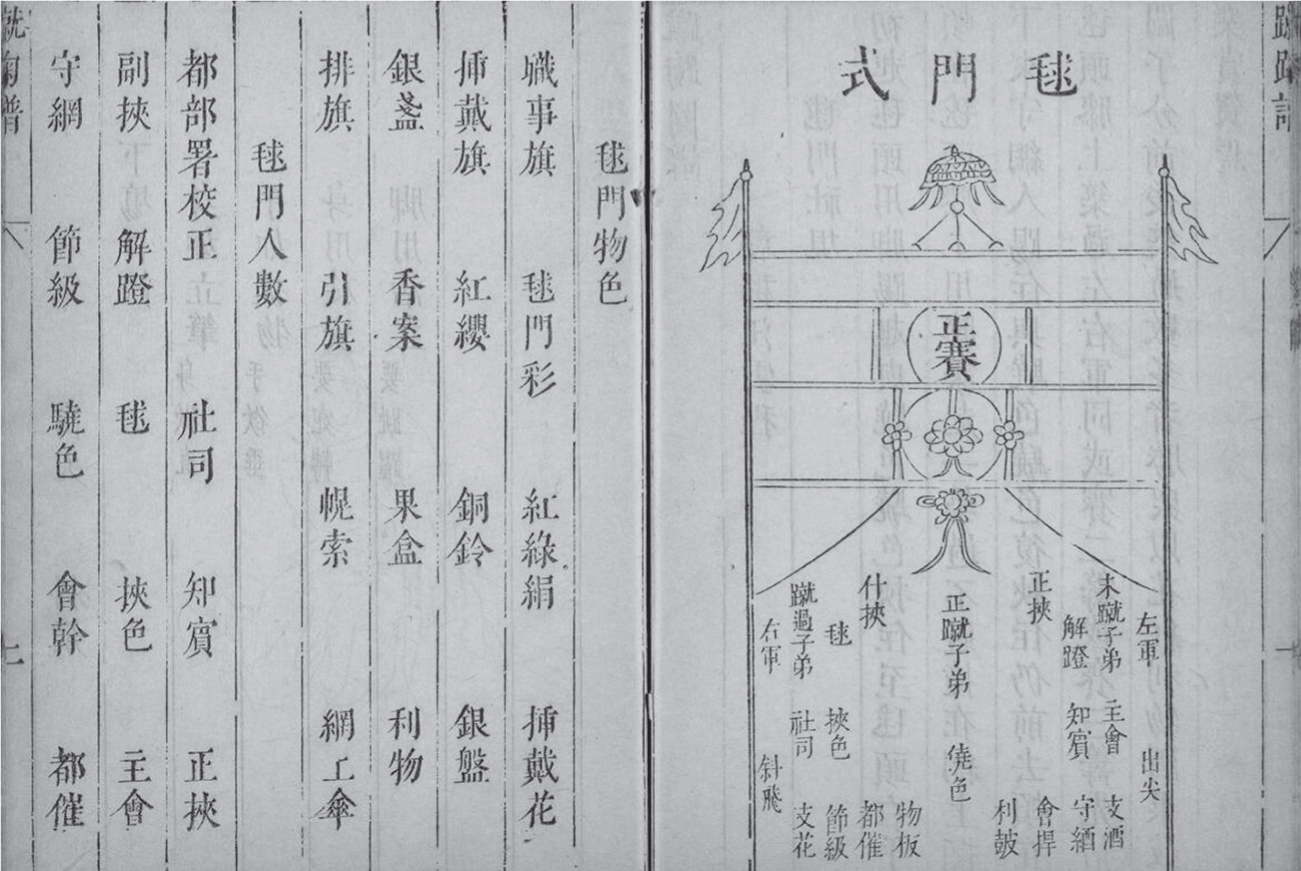 毬門式
正賽
左軍
出尖
未蹴子弟
主會
支酒
解蹬
知賓
守
正挾
會
利
正蹴子弟
色
什挾
物板
都催
毬
挾色
節級
蹴過子弟
社司
支花
右軍
斜飛
毬門物色
職事旗 毬門彩 紅綠絹 揷戴花
揷戴旗 紅纓 銅鈴 銀盤
銀盞 香案 果盒 利物
排旗 引旗 幌索 網上傘
毬門人數
都部署校正 社司 知賓 正挾
副挾 解蹬 毬 挾色 主會
守網 節級 驍色 會幹 都催